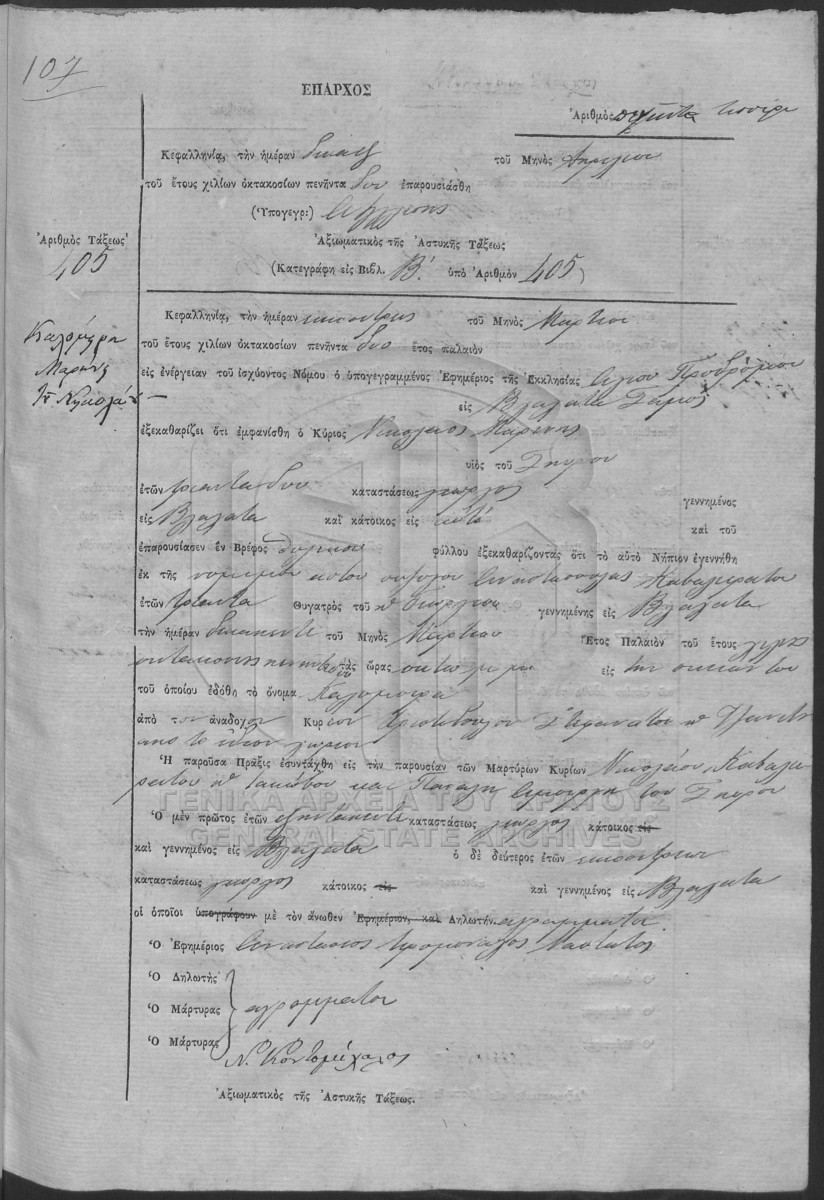 107
ΕΠΑΡΧΟΣ
Ἀριθμὸς
Κεφαλληνία, τὴν ἡμέραν τοῦ Μηνὸς Απριλιου
τοῦ ἔτους χιλίων ὀκτακοσίων πενῆντα δυο ἐπαρουσιάσθη
(Ὑπογεγρ:)
Ἀξιωματικὸς τῆς Ἀστυκῆς Τάξεως
(Κατεγράφη εἰς Βιβλ. Β΄. ὑπὸ Ἀριθμὸν 405)
Ἀριθμὸς Τάξεως
405
Καλομοιρα
Μαρινη
Νικολα
Κεφαλληνία, τὴν ἡμέραν εικοσιτρεις τοῦ Μηνὸς Μαρτιου
τοῦ ἔτους χιλίων ὀκτακοσίων πενῆντα δυο ἔτος παλαιὸν
εἰς ἐνέργειαν τοῦ ἰσχύοντος Νόμου ὁ ὑπογεγραμμένος Ἐφημέριος τῆς Ἐκκλησίας Αγιου Προδρόμου
εἰς Βλαχατα Σαμος
ἐξεκαθαρίζει ὅτι ἐμφανίσθη ὁ Κύριος Νικολαος Μαρινης
υἱὸς τοῦ Σπυρου
ἐτῶν τριαντα δυο καταστάσεως γεωργος γεννημένος
εἰς Βλαχατα καὶ κάτοικος εἰς αυτο καὶ τοῦ
ἐπαρουσίασεν ἓν Βρέφος θηλυκου φύλλου ἐξεκαθαρίζοντας ὅτι τὸ αὐτὸ Νήπιον ἐγεννήθη
ἐκ τῆς νομιμου αυτου συζυγου Αναστασουλας Καβαλιερατου
ἐτῶν τριαντα Θυγατρὸς τοῦ π Γεωργιου γεννημένης εἰς Βλαχατα
τὴν ἡμέραν δεκαπεντε τοῦ Μηνὸς Μαρτιου Ἔτος Παλαιὸν τοῦ ἔτους χιλιες
οκτακοσιες πενηντα δυο τὰς ὥρας οκτω εἰς την οικιαν του
τοῦ ὁποίου ἐδόθη τὸ ὄνομα Καλομοιρα
ἀπὸ τον ἀνάδοχον Κύριον Χριστοδουλον Στεφανατον π
απο το ιδιον χωριον
Ἡ παροῦσα Πράξις ἐσυντάχθη εἰς τὴν παρουσίαν τῶν Μαρτύρων Κυρίων Νικολαου Καβαλιε-
ρατου π Ιακωβου και Παναγη του Σπυρου
Ὁ μὲν πρῶτος ἐτῶν εξηνταπεντε καταστάσεως γεωργος κάτοικος εἰς
καὶ γεννημένος εἰς Βλαχατα ὁ δὲ δεύτερος ἐτῶν εικοσιτρεων
καταστάσεως γεωργος κάτοικος εἰς καὶ γεννημένος εἰς Βλαχατα
οἱ ὁποῖοι ὑπογράφουν μὲ τὸν ἄνωθεν Ἐφημέριον, καὶ Δηλωτήν. αγραμματοι
Ὁ Ἐφημέριος Αναστασιος Ιερομοναχος
Ὁ Δηλωτὴς
Ὁ Μάρτυρας αγραμματοι
Ὁ Μάρτυρας
Ν. Κοντομίχαλος
Ἀξιωματικὸς τῆς Ἀστυκῆς Τάξεως.
ΓΕΝΙΚΑ ΑΡΧΕΙΑ ΤΟΥ ΚΡΑΤΟΥΣ
GENERAL STATE ARCHIVES